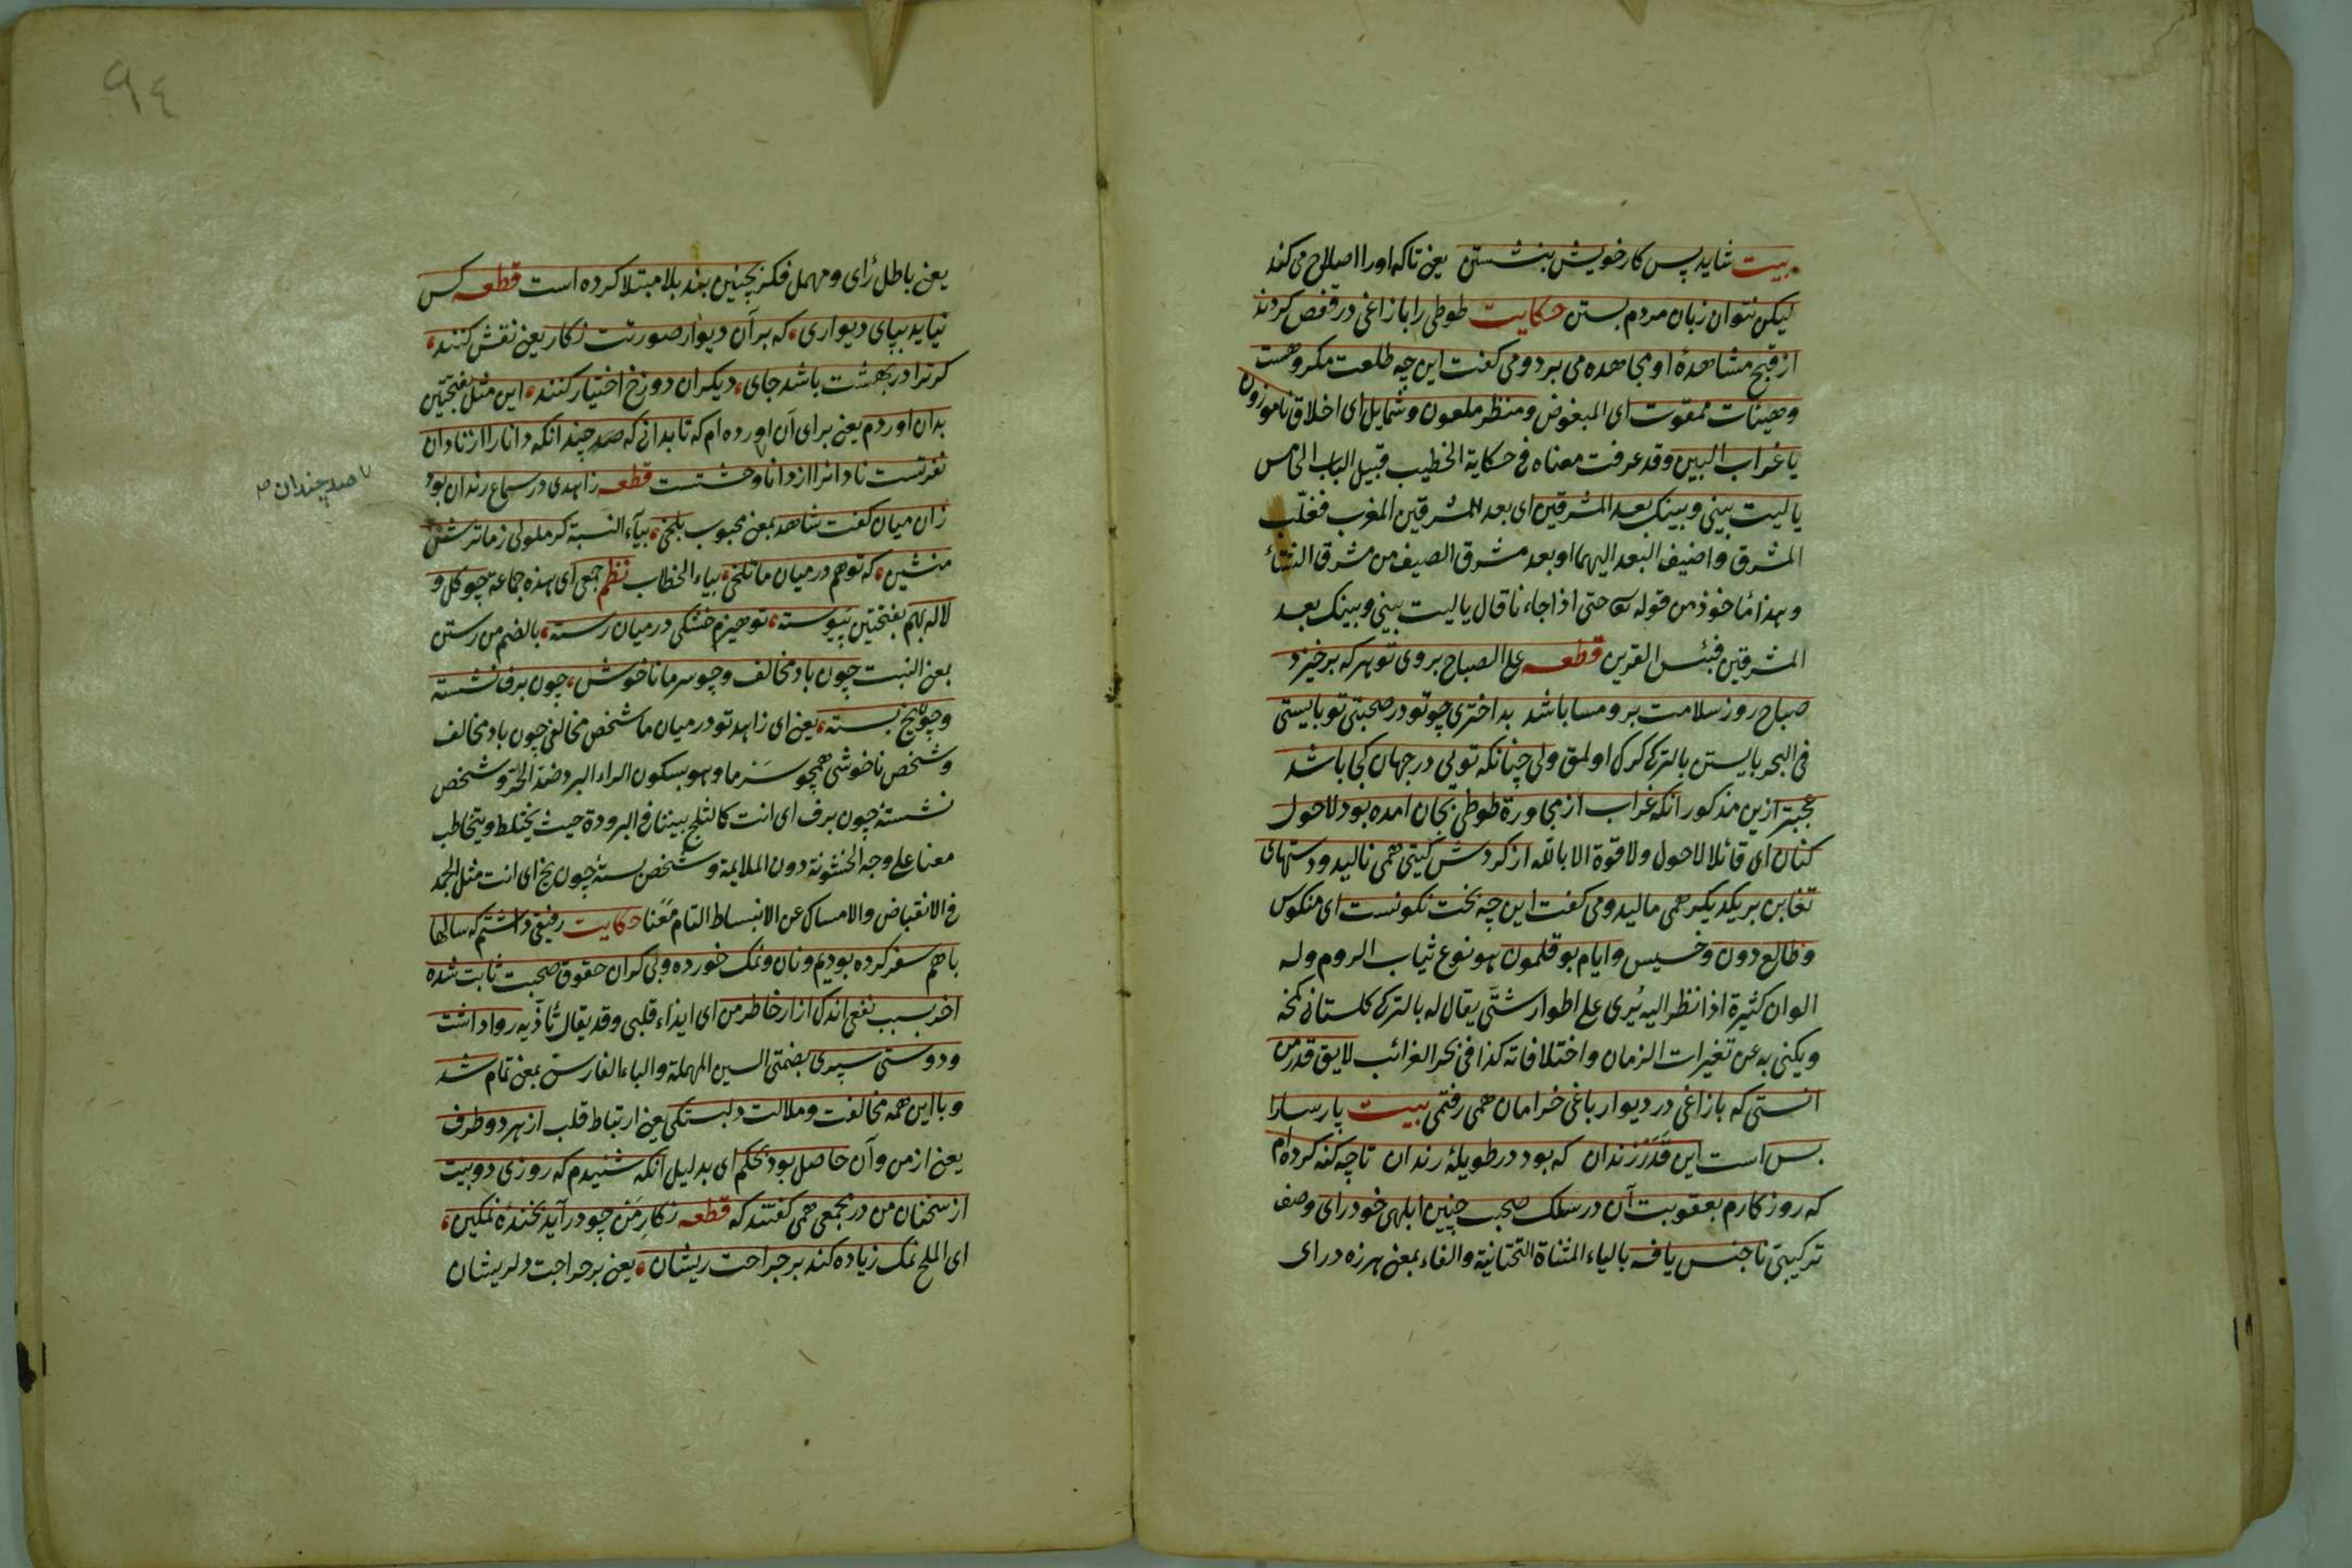 بیت شاید پس کار خویش بنشستن یعنی تا که اورا اصلاح می کند
لیکن نتوان زبان مردم بستن حکایت طوطی را با زاغی در قفص کردند
از قبح مشاهدهٔ او مجاهده می برد و می کفت این چه طلعت مکروهست
وهیئات ممقوت ای المبغوض و منظر ملعون و شمایل ای اخلاق ناموزون
یا غراب البین وقد عرفت معناه فی حکایة الخطیب قبیل الباب الخامس
یا لیت بینی وبینک بعد المشرقین ای بعد المشرقین المغرب فغلّب
المشرق واضیف البعد الیهما او بعد مشرق الصیف من مشرق الشتاء
وهذا مأخوذ من قوله تع حتی اذا جاءنا قال یا لیت بینی وبینک بعد
المشرقین فبئس القرین قطعه علی الصباح بروی تو هرکه برخیزد
صباح روز سلامت برو مسا باشد بداختری چو تو در صحبتی تو بایستی
فی البحر بایستن بالترکی کرک اولمق ولی چنانکه تویی در جهان کجا باشد
عجبتر ازین مذکور انکه غراب از مجاورة طوطی بجان امده بود لاحول
کنان ای قائلا لاحول ولا قوة الا بالله از کردش کیتی همی نالید و دستهای
تغابن بر یکدیکر همی مالید و می کفت این چه بخت نکونست ای منکوس
وطالع دون وخسیس وایام بوقلمون هو نوع ثیاب الروم وله
الوان کثیرة اذا نظر الیه یُری علی اطوار شتّی یقال له بالترکی کلستانی کمخه
ویکنی به عن تغیرات الزمان واختلافاته کذا فی بحر الغرائب لایق قدر من
انستی که با زاغی در دیوار باغی خرامان همی رفتمی بیت پارسارا
بس است این قَدَر زندان که بود در طویلهٔ رندان تا چه کنه کرده ام
که روزکارم بعقوبت آن در سلک صحبت چنین ابلهی خودرای وصف
ترکیبی ناجنس یافه بالیاء المثناة التحتانیة والفاء بمعنی هرزه درای
یعنی باطل رأی ومهمل فکر بچنین بند بلا مبتلا کرده است قطعه کس
نیاید بپای دیواری، که بر آن دیوار صورتت نکار یعنی نقش کنند،
کر ترا در بهشت باشد جای، دیکران دوزخ اختیار کنند، این مثل بفتحتین
بدان اوردم یعنی برای آن اورده ام که تا بدانی که صد چندانکه دانارا از نادان
نفرتست نادانرا از دانا وحشتست قطعه زاهدی در سماع رندان بود
تا صد چندان ص
زان میان کفت شاهد بمعنی محبوب بلخی، بیاء النسبة کر ملولی زما ترش
منشین، که تو هم در میان ما تلخی، بیاء الخطاب نظم جمعی ای هذه جماعة چو کل و
لاله بهم بفتحتین پیوسته، تو هیزم خشکی در میان رسته، بالضم من رستن
بمعنی النبت چون باد مخالف و چو سرما ناخوش، چون برف نشسته
و چون یخ بسته، یعنی ای زاهد تو در میان ما شخص مخالفی چون باد مخالف
و شخص ناخوشی همچو سَرْما وهو بسکون الراء البرد ضد الحرّ وشخص
نشسته چون برف ای انت کالثلج بیننا فی البرودة حیث یختلط ویتخاطب
معنا علی وجه الخشونة دون الملایمة وشخص بستهٔ چون یخ ای انت مثل الجمد
فی الانقباض والامساک عن الانبساط التام مَعَنا حکایت رفیقی داشتم که سالها
با هم سفر کرده بودیم و نان و نمک خورده و بی کران حقوق صحبت ثابت شده
اخر بسبب نفعی اندک ازار خاطر من ای ایذاء قلبی وقد یقال تأذّیه روا داشت
و دوستی سپری بضمتی السین المهملة والباء الفارسی بمعنی تمام شد
و با این همه مخالفت و ملالت دلبستکی یعنی ارتباط قلب از هر دو طرف
یعنی از من و آن حاصل بود بحکم ای بدلیل انکه شنیدم که روزی دو بیت
از سخنان من در مجمعی همی کفتند که قطعه نکارِ مَن چو درآید بخندهٔ نمکین،
ای الملح نمک زیاده کند بر جراحت ریشان، یعنی بر جراحت دلریشان
٩٤